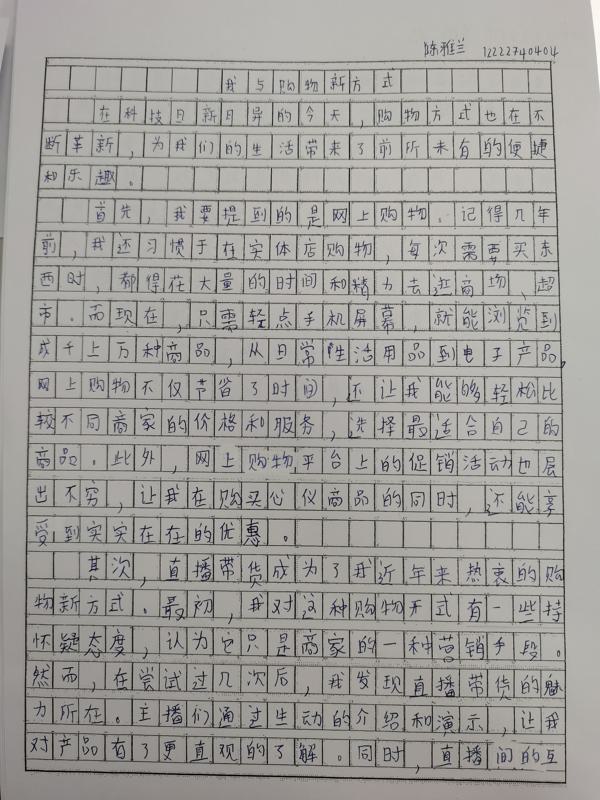 陈雅兰 12222740404
我与购物新方式
在科技日新月异的今天，购物方式也在不
断革新，为我们的生活带来了前所未有的便捷
和乐趣。
首先，我要提到的是网上购物。记得几年
前，我还习惯于在实体店购物，每次需要买东
西时，都得花大量的时间和精力去逛商场、超
市。而现在，只需轻点手机屏幕，就能浏览到
成千上万种商品，从日常性活用品到电子产品，
网上购物不仅节省了时间，还让我能够轻松比
较不同商家的价格和服务，选择最适合自己的
商品。此外，网上购物平台上的促销活动也层
出不穷，让我在购买心仪商品的同时，还能享
受到实实在在的优惠。
其次，直播带货成为了我近年来热衷的购
物新方式。最初，我对这种购物形式有一些持
怀疑态度，认为它只是商家的一种营销手段。
然而，在尝试过几次后，我发现直播带货的魅
力所在。主播们通过生动的介绍和演示，让我
对产品有了更直观的了解。同时，直播间的互